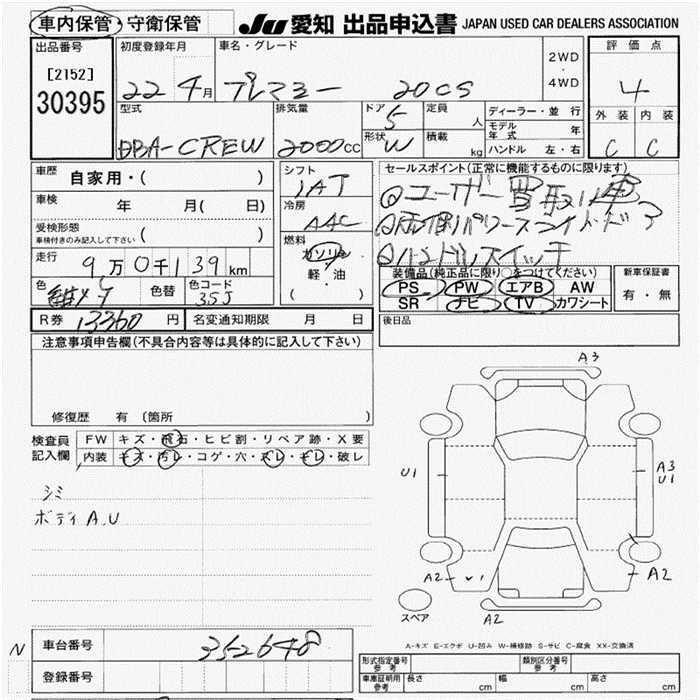 車内保管・守衛保管 JU 愛知 出品申込書 JAPAN USED CAR DEALERS ASSOCIATION
出品番号 初度登録年月 車名・グレード 2WD・4WD 評価点
[2152] 22 4月 プレマシー 20CS 4
30395 型式 排気量 ドア 5 定員 人 ディーラー・並行 外装 内装
DBA-CREW 2000cc 形状 W 積載 kg モデル年式 年 C C
ハンドル 左・右
車歴 自家用・( ) シフト セールスポイント(正常に機能するものに限ります)
車検 年 月( 日) IAT ①ユーザー買取り車
受検形態 車検付きのみ記入して下さい ( ) 冷房 AAC ②両側パワースライドドア
走行 9万0千139km 燃料 ガソリン ③ハンドルスイッチ
軽・油 ( ) 装備品(純正品に限り○をつけてください) 新車保証書
色 色替 色コード 35J PS PW エアB AW 有・無
SR ナビ TV カワシート
R券 13360円 名変通知期限 月 日 後日品
注意事項申告欄(不具合内容等は具体的に記入して下さい)
修復歴 有 (箇所
検査員記入欄 FW キズ・飛石・ヒビ割・リペア跡・X要
内装 キズ・汚レ・コゲ・穴・スレ・キレ・破レ
シミ
ボディA.U
A3
U1
A3
U1
A2
U1
A2
A2
スペア
A-キズ E-エクボ U-凹み W-補修跡 S-サビ C-腐食 XX-交換済
N 車台番号 352648
登録番号
形式指定番号 参考 類別区分番号 参考
車庫証明用 参考 長さ cm 幅 cm 高さ cm